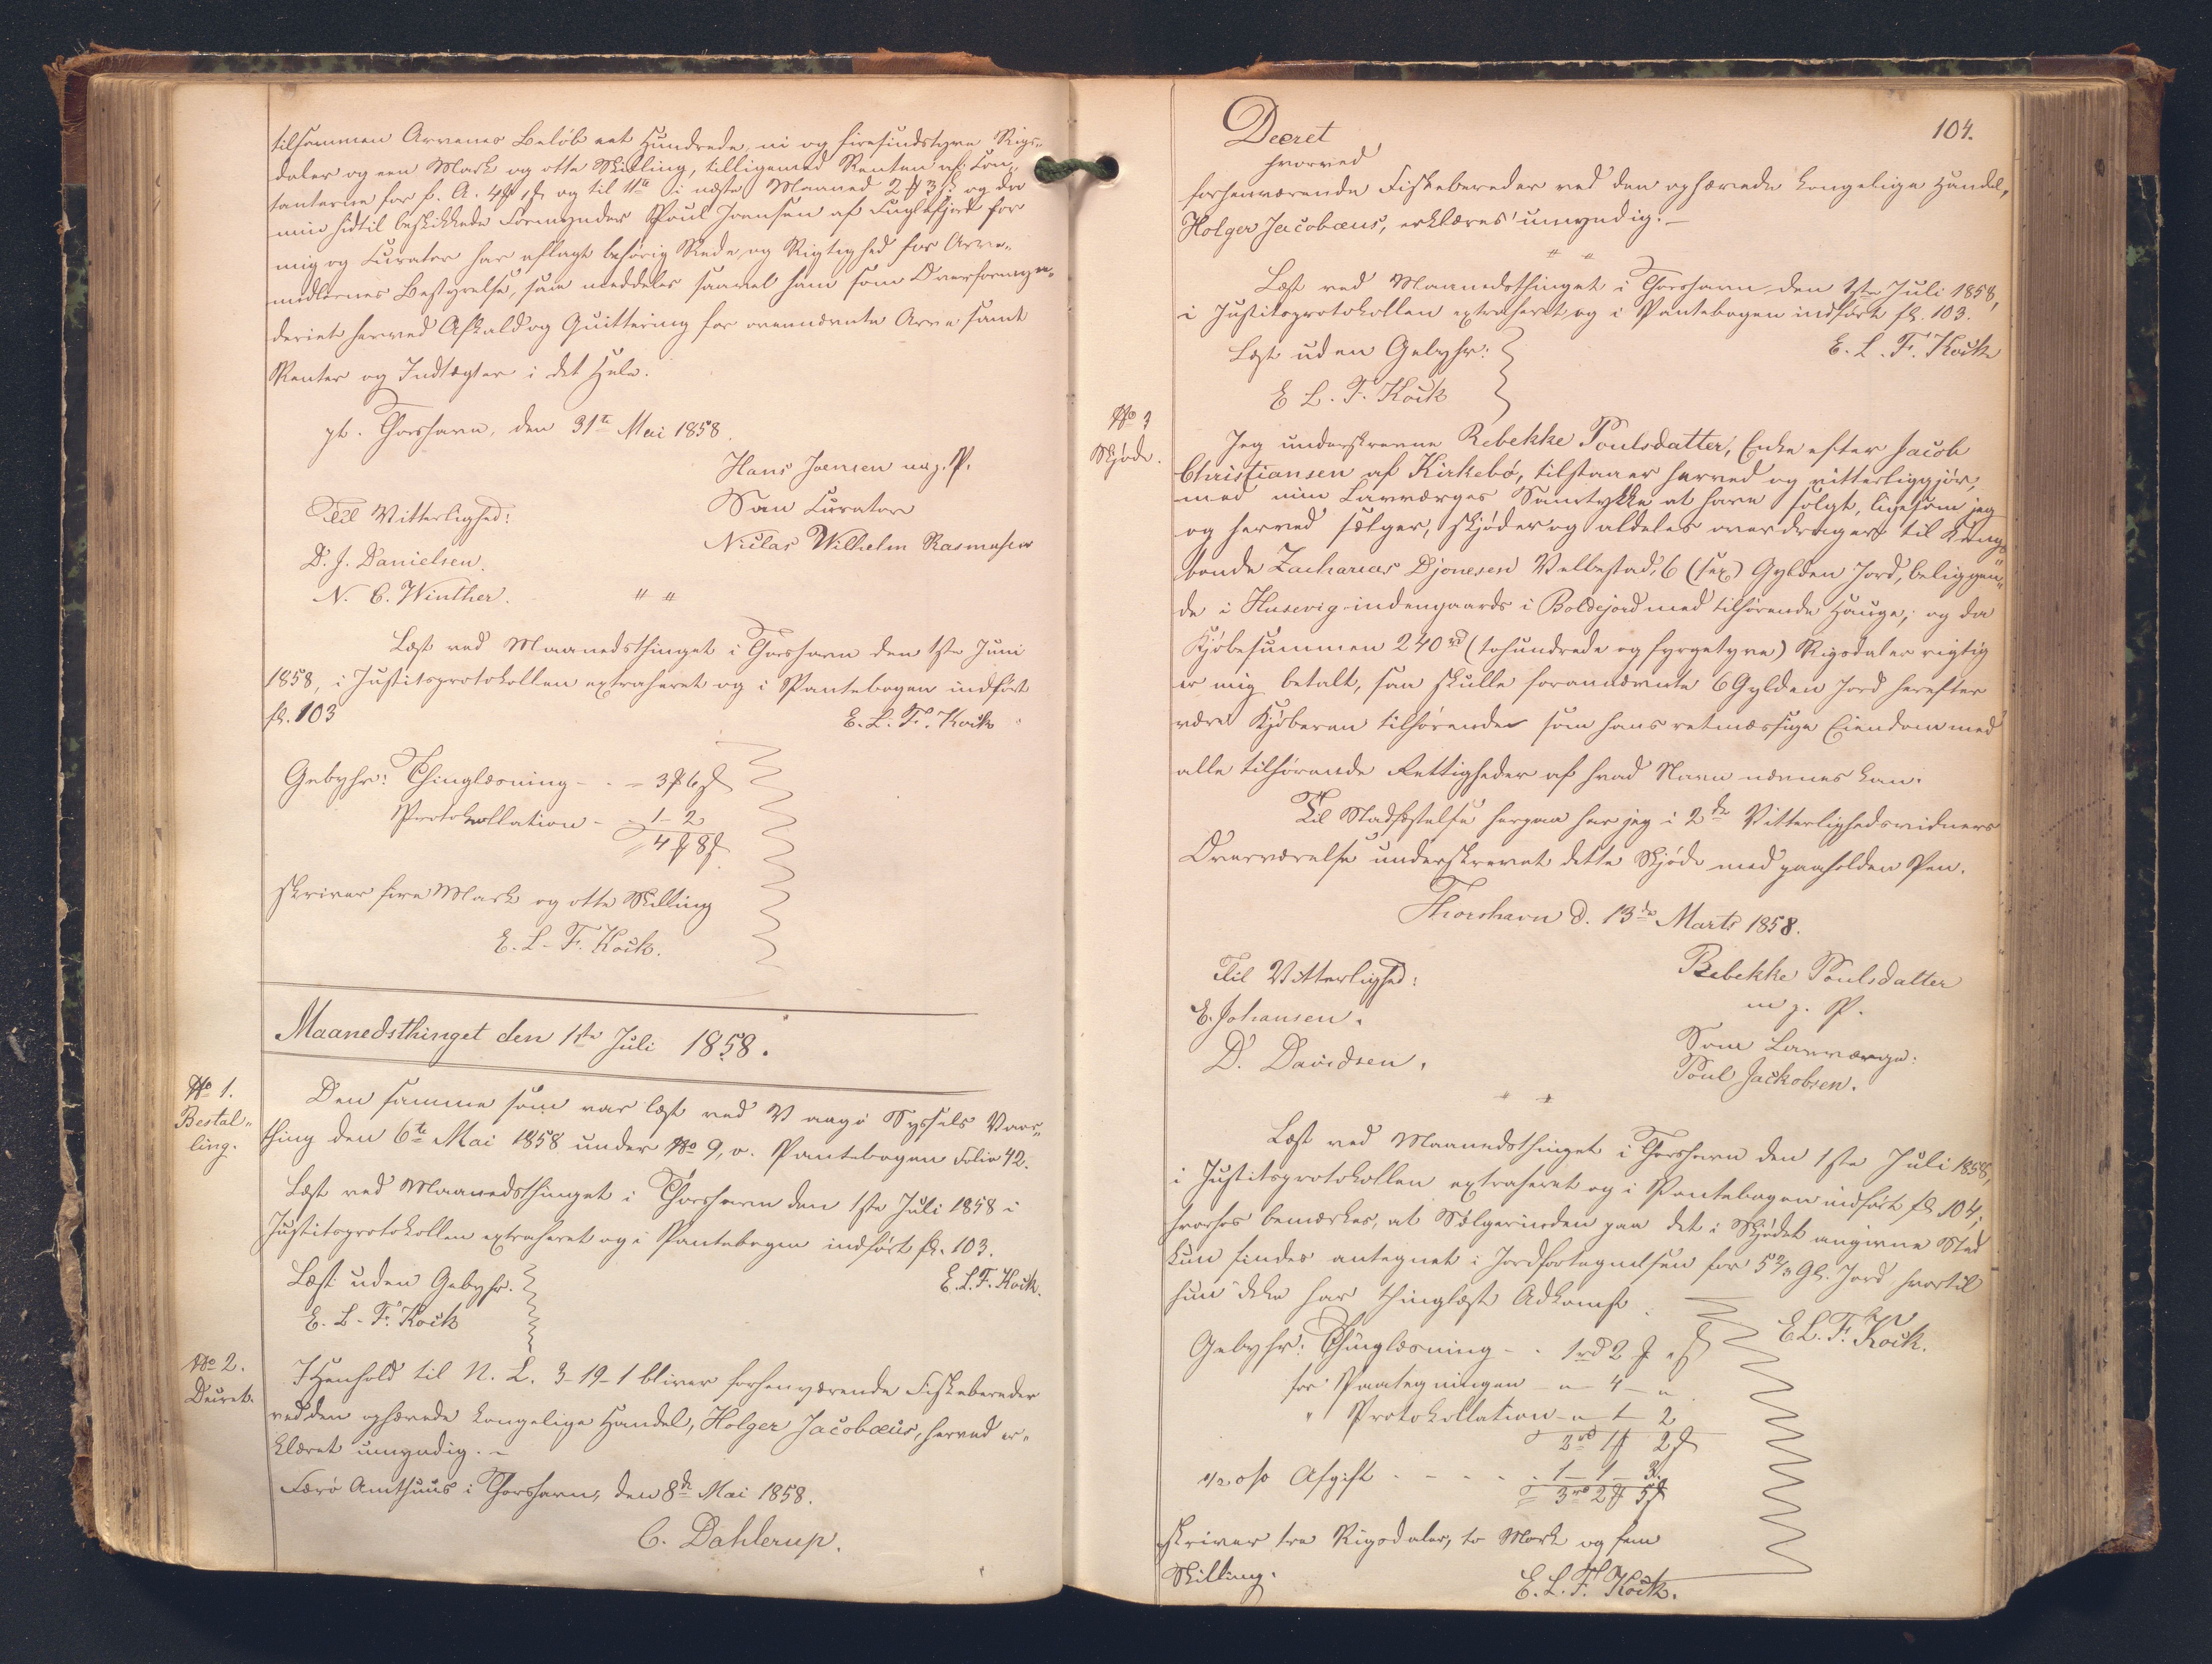 tilsammen Arvenes Beløb eet Hundrede, ni og firesindstyve Rigs„
daler og een Mark og otte Skilling, tilligemed Renten af Con„
tanterne for f. A. og til 11te i næste Maaned og da
min hidtil beskikkede Formynder Poul Joensen af Fuglefjord for
mig og Curator har aflagt behørig Rede og Rigtighed for Arve„
midlernes Bestyrelse, saa meddeles saavel ham som Overformyn„
deriet herved Afkald og Quittering for ovennævnte Arv samt
Renter og Indtægter i det Hele.
pt. Thorshavn, den 31te Mai 1858.
Hans Joensen m. p. P.
Til Vitterlighed:
Som Curator
D. J. Danielsen.
Niclas Wilhelm Rasmussen
N. C. Winther.
Læst ved Maanedsthinget i Thorshavn den 1ste Juni
1858, i Justitsprotokollen extraheret og i Pantebogen indført
fol. 103
E. L. F. Kock
Gebyhr: Thinglæsning - - = 3 ₰ 6 ß
Protokollation - - 1 - 2
= 4 ₰ 8 ß
skriver fire Mark og otte Skilling
E. L. F. Kock.
Maanedsthinget den 1ste Juli 1858.
No 1.
Bestal„
ling.
Den samme som var læst ved Vaagø Syssels Vaar„
thing den 6te Mai 1858 under No 9, v. Pantebogen Folio 42.
Læst ved Maanedsthinget i Thorshavn den 1ste Juli 1858 i
Justitsprotokollen extraheret og i Pantebogen indført fol. 103.
Læst uden Gebyhr.
E. L. F. Kock.
E. L. F. Kock
No 2.
Decret.
I Henhold til N. L. 3-19-1 bliver forhenværende Fiskebereder
ved den ophævede kongelige Handel, Holger Jacobæus, herved er„
klæret umyndig. -
Færø Amthuus i Thorshavn, den 8de Mai 1858.
C. Dahlerup.
104.
Decret
hvorved
forhenværende Fiskebereder ved den ophævede kongelige Handel,
Holger Jacobæus, erklæres umyndig. -
Læst ved Maanedsthinget i Thorshavn den 1ste Juli 1858,
i Justitsprotokollen extraheret og i Pantebogen indført fol. 103.
Læst uden Gebyhr:
E. L. F. Kock
E. L. F. Kock
No 3
Skjøde.
Jeg underskrevne Rebekke Poulsdatter, Enke efter Jacob
Christiansen af Kirkebø, tilstaaer herved og vitterliggjør,
med min Lavværges Samtykke at have solgt, ligesom jeg
og herved sælger, skjøder og aldeles overdrager til Kongs„
bonde Zacharias Djonesen Velbestad, 6 (sex) Gylden Jord, beliggen„
de i Husevig indengaards i Boldejord med tilhørende Hauge; og da
Kjøbesummen 240 rd (tohundrede og fyrgetyve) Rigsdaler rigtig
er mig betalt, saa skulle forannævnte 6 Gylden Jord herefter
være Kjøberen tilhørende som hans retmæssige Eiendom med
alle tilhørende Rettigheder af hvad Navn nævnes kan.
Til Stadfæstelse herpaa har jeg i 2de Vitterlighedsvidners
Overværelse underskrevet dette Skjøde med paaholden Pen.
Thorshavn d. 13de Marts 1858.
Til Vitterlighed:
Rebekke Poulsdatter
m. p. P.
E. Johansen.
Som Lavværge:
D. Davidsen.
Poul Jackobsen.
Læst ved Maanedsthinget i Thorshavn den 1ste Juli 1858,
i Justitsprotokollen extraheret og i Pantebogen indført fol. 104,
hvorhos bemærkes, at Sælgerinden paa det i Skjødet angivne Sted
kun findes antegnet i Jordfortegnelsen for 5 2/3 Gl. Jord hvortil
hun ikke har thinglæst Adkomst.
E. L. F. Kock.
Gebyhr: Thinglæsning - - 1 rd 2 ₰ „ ß
for Paategningen - „ - 4 - „
„ Protokollation - „ - 1 - 2
2 rd 1 ₰ 2 ß
1/2 o/o Afgift - - - - 1 - 1 - 3.
= 3 rd 2 ₰ 5 ß
skriver tre Rigsdaler, to Mark og fem
Skilling.
E. L. F. Kock.